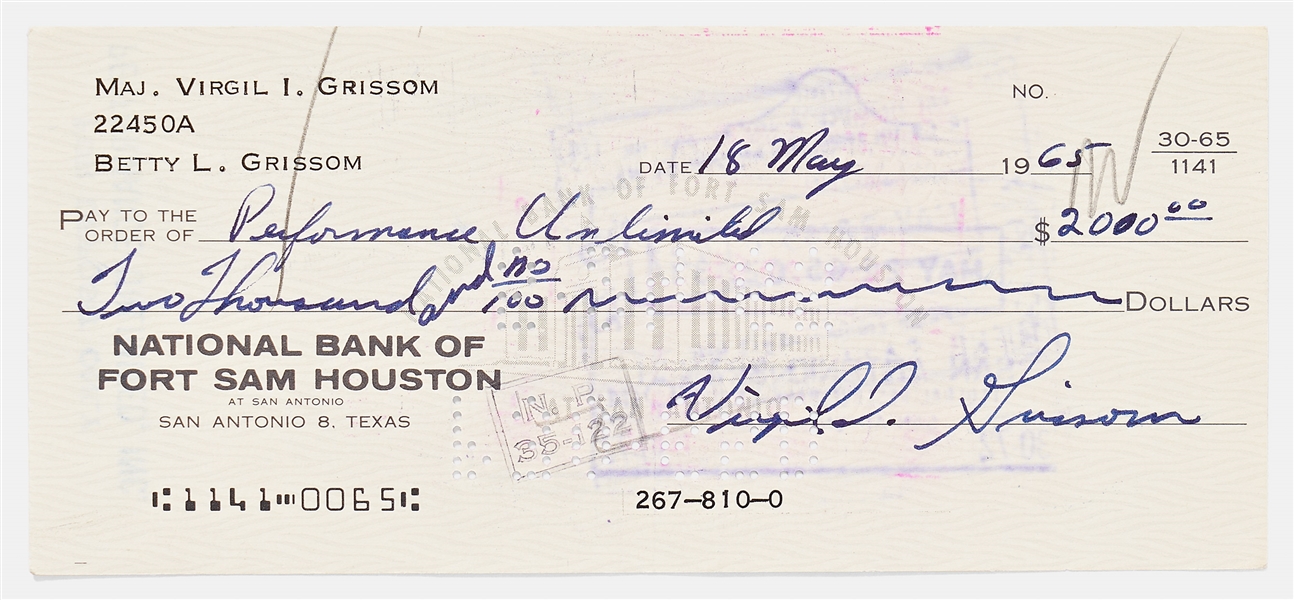 MAJ. VIRGIL I. GRISSOM
22450A
BETTY L. GRISSOM
NO.
DATE 18 May 1965
30-65
1141
PAY TO THE ORDER OF Performance Unlimited $2000 00
Two Thousand and no/100 DOLLARS
NATIONAL BANK OF FORT SAM HOUSTON
NATIONAL BANK OF
FORT SAM HOUSTON
AT SAN ANTONIO
SAN ANTONIO 8, TEXAS
N. P.
35-122
AT SAN ANTONIO
Virgil I. Grissom
⑆1141⑉0065⑆
267-810-0